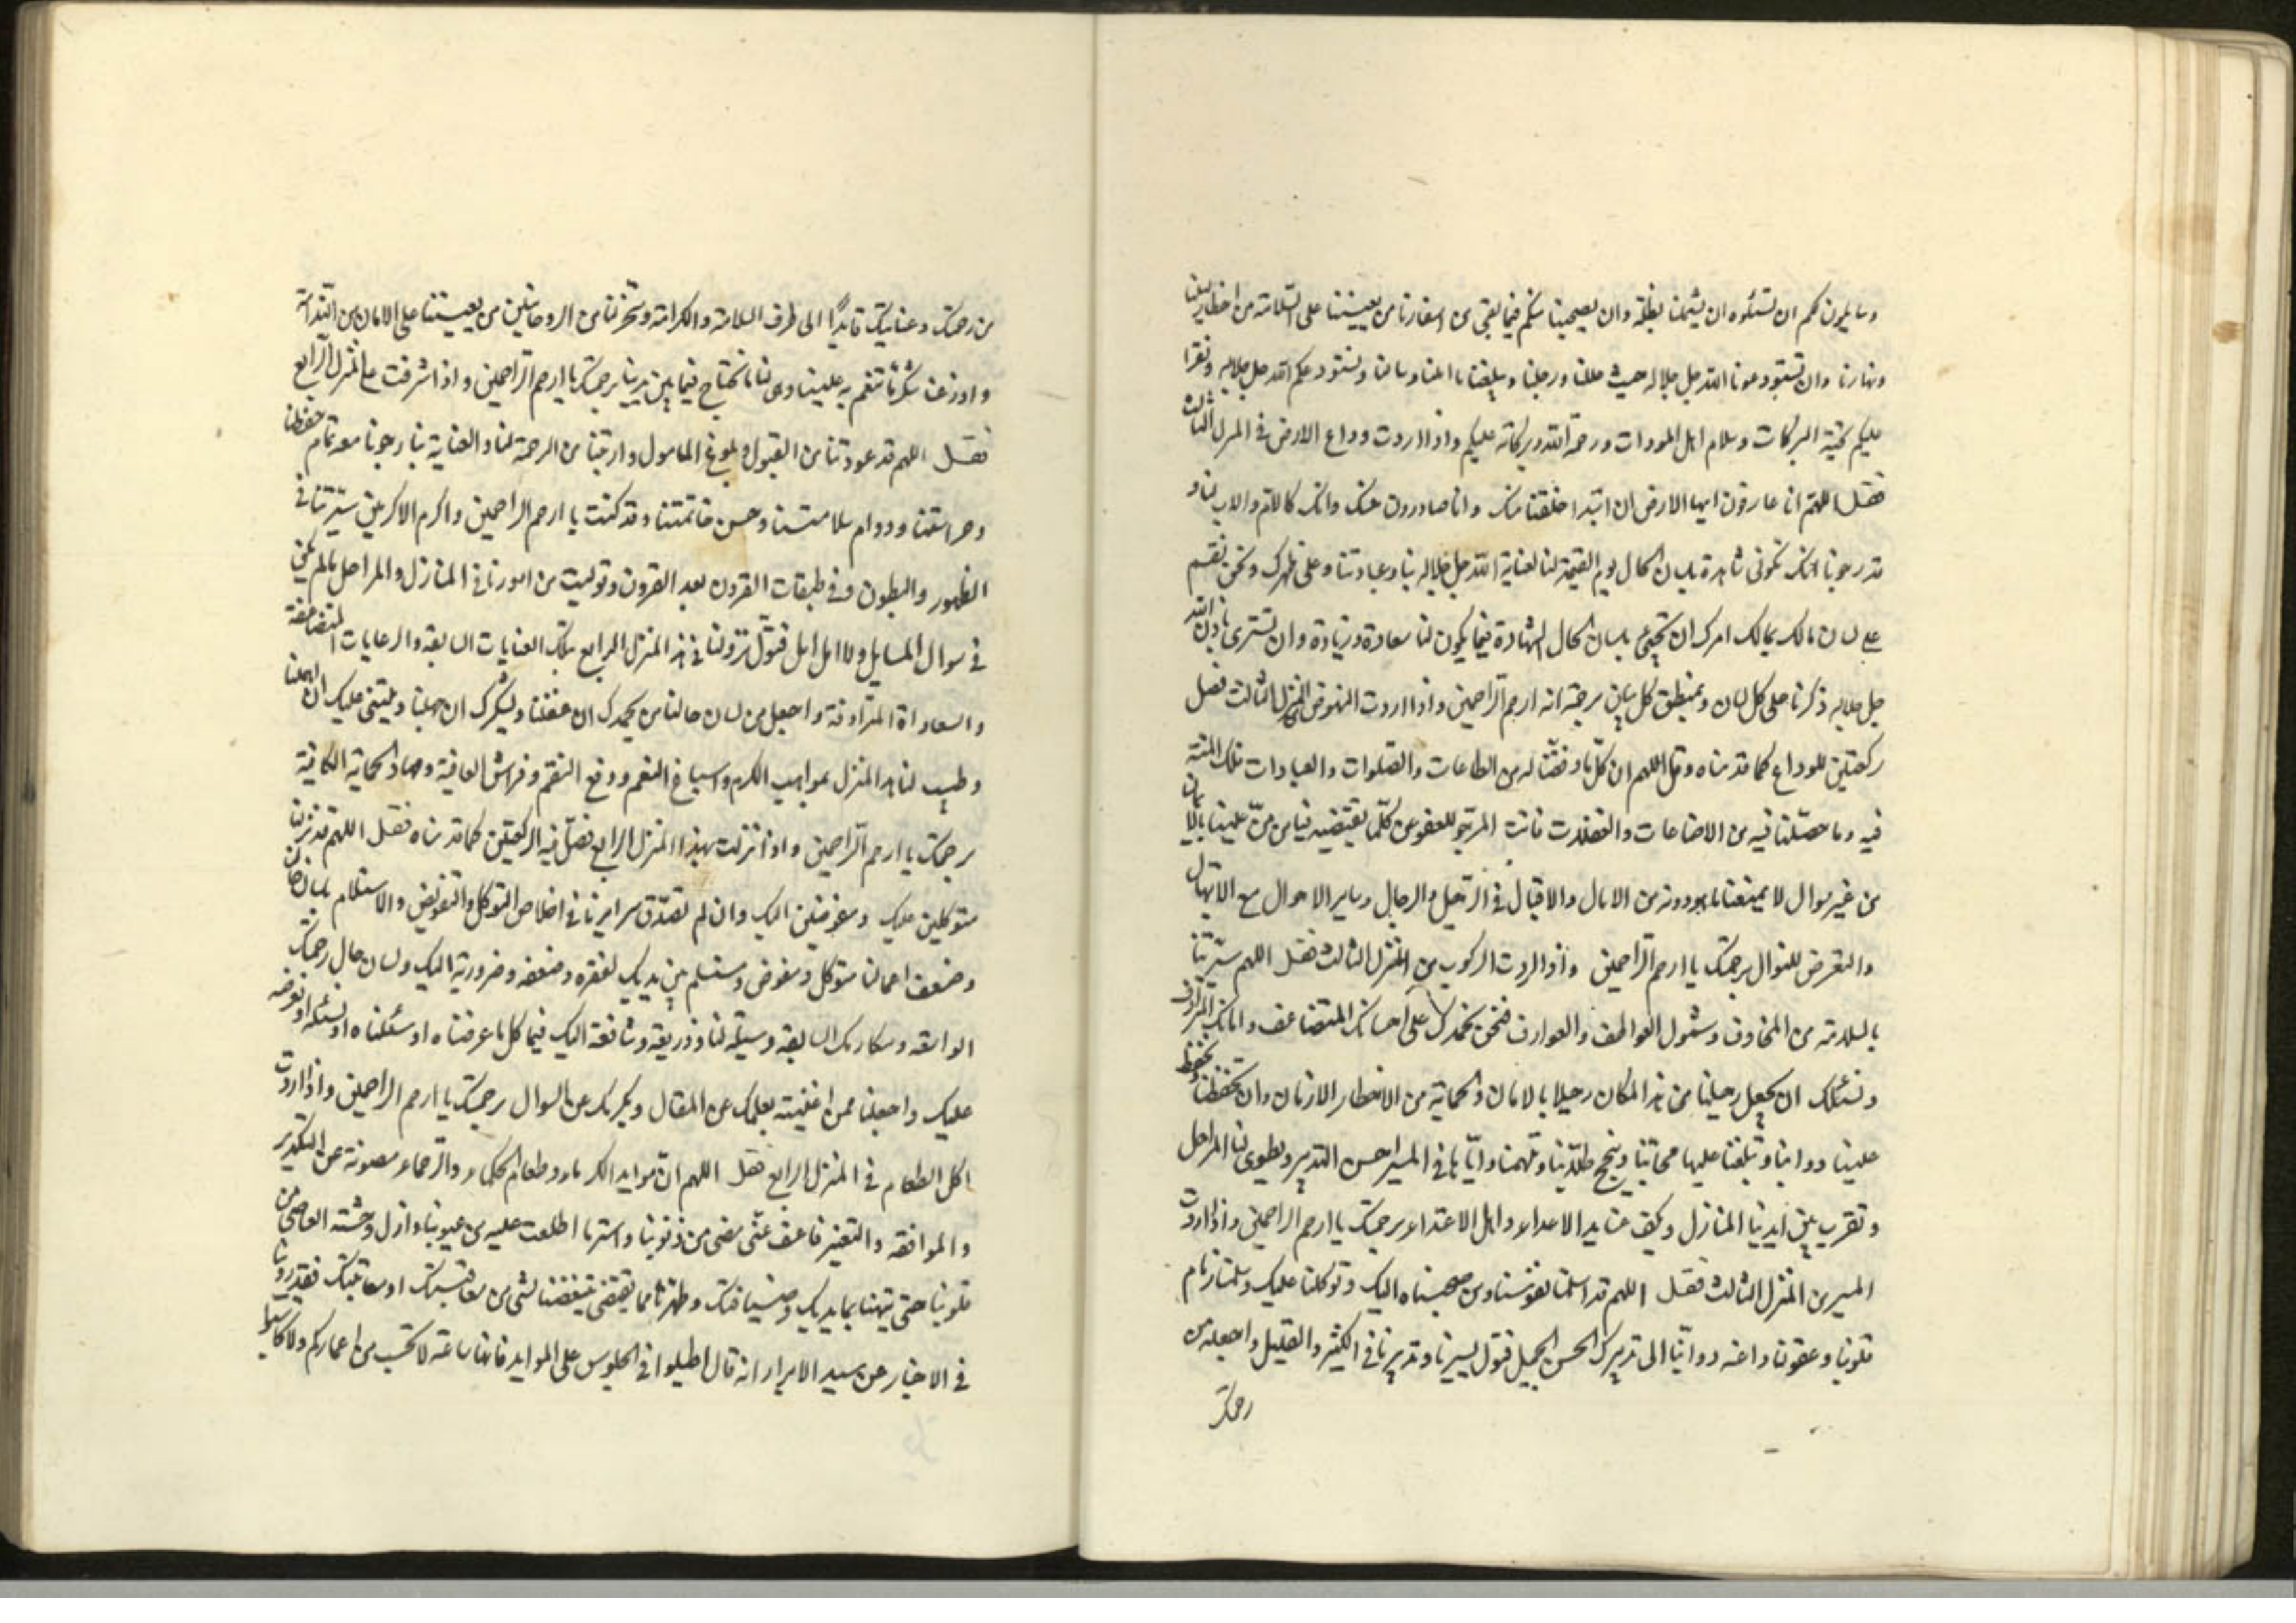 وسايلون لكم ان تسئلوه ان يشملنا بظله وان يصحبنا منكم فيما بقى من اسفارنا من يعيننا على السلامة من اخطار ليلنا
ونهارنا وان تستودعونا الله جل جلاله حيث حللنا ورحلنا ويبلغنا ما املنا وسالنا ونستودعكم الله جل جلاله ونقرا
عليكم تحية البركات وسلام اهل المودات ورحمة الله وبركاته عليكم واذا اردت وداع الارض فى المنزل الثالث
فقل اللهم انا عارفون ايها الارض ان ابتداء خلقتنا منك وانا صادرون عنك وانك كالام والاب لنا و
قد رجونا انك تكونى شاهدة بلسان الحال يوم القيمة لنا لعناية الله جل جلاله بنا وعبادتنا وعلى ظهرك ونحن نقسم
على لسان مالك بمالك امرك ان تجيبى بلسان الحال الشهادة فيما يكون لنا سعادة وزيادة وان تسترى باذن الله
جل جلاله ذكرنا على كل لسان ومنطق كل بيان برحمته انه ارحم الراحمين واذا اردت النهوض من المنزل الثالث فصل
ركعتين للوداع كما قدمناه وقل اللهم ان كل ما وفقتنا له من الطاعات والصلوات والعبادات فلك المنة
فيه وما حصلنا فيه من الاضاعات والغفلات فانت المرجو للعفو عن كلما تقتضيه فيا من من علينا بالايمان
من غير سوال لا تمنعنا ما هو دونه من الامال والاقبال فى الترحل والرحال وساير الاحوال مع الابتهال
والتعرض للنوال برحمتك يا ارحم الراحمين واذا اردت الركوب من المنزل الثالث فقل اللهم سيرتنا
بالسلامة من المخاوف وشمول العواطف والعوارف فنحن نحمدك على احسانك المتضاعف وامانك المترادف
ونسئلك ان تجعل رحيلنا من هذا المكان رحيلا بالامان والحماية من الاخطار الازمان وان تحفظنا وتحفظ
علينا دوابنا وتبلغنا عليها محابنا وتنجح طلبتنا وتلهمنا واياها فى المسير احسن التدبير وتطوى لنا المراحل
وتقرب بين ايدينا المنازل وكف عنا يد الاعداء واهل الاعتداء برحمتك يا ارحم الراحمين واذا اردت
المسير من المنزل الثالث فقل اللهم قد اسلمنا نفوسنا ومن صحبناه اليك وتوكلنا عليك وسلمنا زمام
قلوبنا وعقولنا واعنة دوابنا الى تدبيرك الحسن الجميل فتول تسييرنا وتدبيرنا فى الكثير والقليل واجعل من
رحمتك
من رحمتك وعنايتك قايدا الى طرف السلامة والكرامة وسخر لنا من الروحانيين من يعيننا على الامان من الندامة
واوزعنا شكر ما تنعم به علينا وهب لنا ما نحتاج فيما بين يدينا برحمتك يا ارحم الراحمين واذا اشرفت على المنزل الرابع
فقل اللهم قد عودتنا من القبول وبلوغ المامول واريتنا من الرحمة لنا والعناية بنا رجونا معه تمام حفظنا
وحراستنا ودوام سلامتنا وحسن خاتمتنا وقد كنت يا ارحم الراحمين واكرم الاكرمين سيرتنا فى
الظهور والبطون وفى طبقات القرون بعد القرون وتوليت من امورنا فى المنازل والمراحل ما لم يكن
فى سوال المسايل ولا امل امل فتول نزولنا فى هذا المنزل الرابع بتلك العنايات السابقه والرعايات المتضاعفة
والسعاداة المترادفة واجعل من لسان حالنا من يحمدك ان غفلنا ويشكرك ان جهلنا ويثنى عليك ان اهملنا
وطيب لنا هذا المنزل بمواهب الكرم واسباغ النعم ودفع النقم وفراش العافية ومهاد الحماية الكافية
برحمتك يا ارحم الراحمين واذا نزلت بهذا المنزل الرابع فصل فيه الركعتين كما قدمناه فقل اللهم قد نزلنا
متوكلين عليك ومفوضين اليك وان لم تصدق سرايرنا فى اخلاص التوكل والتفويض والاستلام فلسان حال
وضعف اعمالنا متوكل ومفوض ومستسلم بين يديك لفقره وضعفه وضرورته اليك ولسان حال رحمتك
الواسعه ومكارمك السابقه وسيلة لنا وذريعة وشافعة اليك فيما كل ما عرضناه او سئلناه او نسئله او نعرضه
عليك واجعلنا ممن اغنيته بعلمك عن المقال وبكرمك عن السوال برحمتك يا ارحم الراحمين واذا اردت
اكل الطعام فى المنزل الرابع فقل اللهم ان موايد الكرماء وطعام الحكماء والرحماء مصونة عن التكدير
والموافقه والتغير فاعف عنى مضى من ذنوبنا واستر ما اطلعت عليه من عيوبنا وازل وحشة العاصى من
قلوبنا حتى تهنئنا بمايدتك وضيافتك وطهرنا مما يقتضى تنغصنا لشئ من معاتبتك او معاقبتك فقد روينا
فى الاخبار عن سيد الابرار انه قال اطيلوا فى الجلوس على الموايد فانها ساعة لا تحسب من اعماركم ولا كانوا